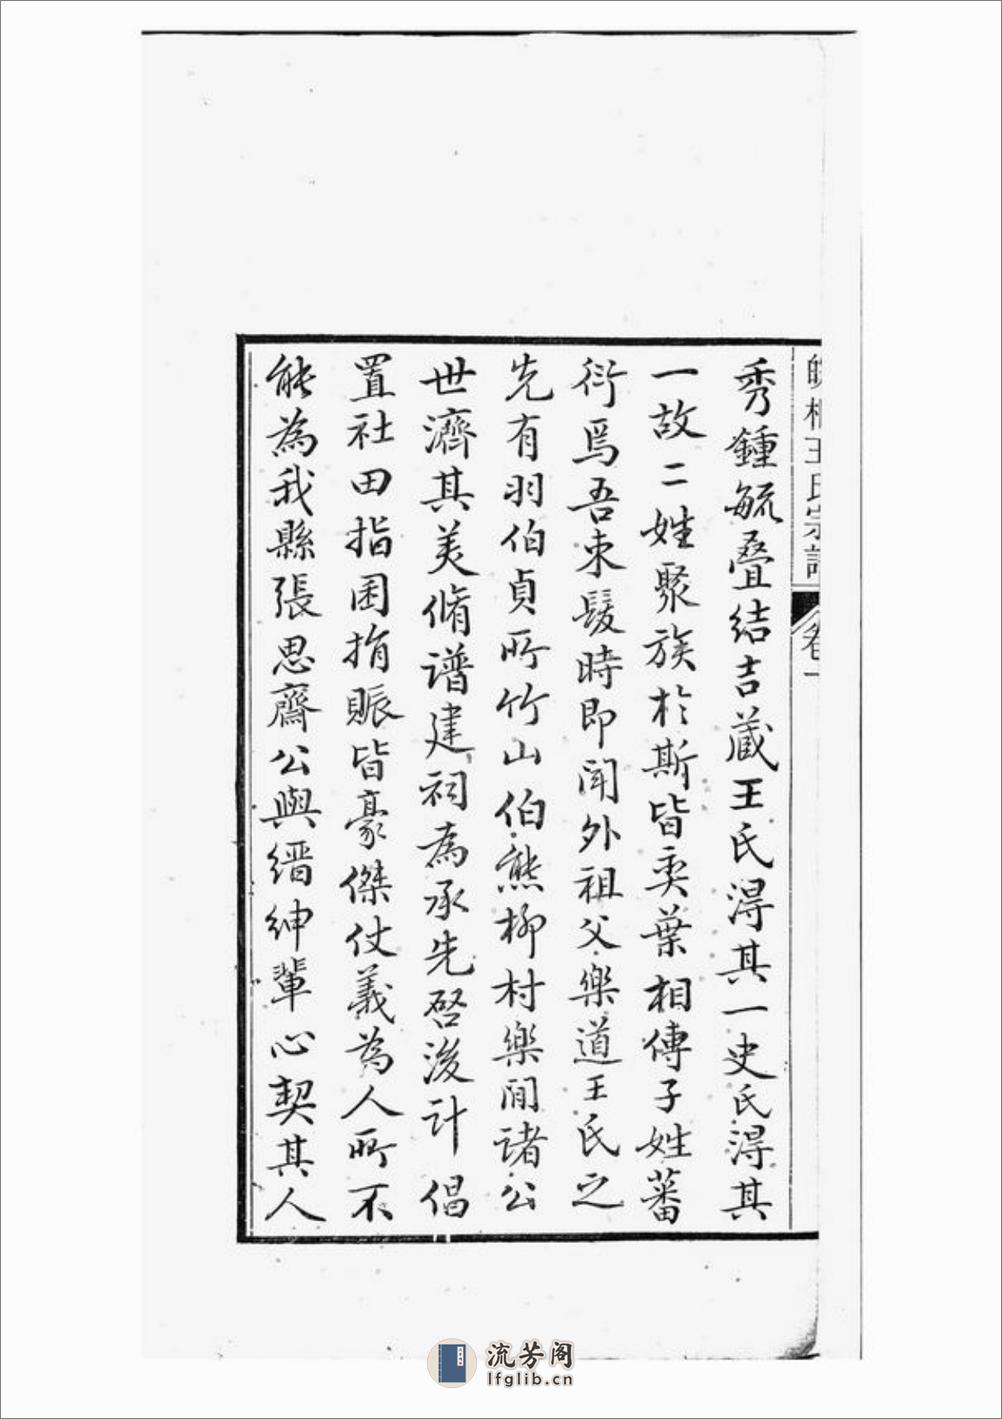 王氏宗譜
卷一
秀鍾毓疊結吉藏王氏淂其一史氏淂其
一故二姓聚族於斯皆奕葉相傳子姓蕃
衍焉吾束髮時即聞外祖父樂道王氏之
先有羽伯貞所竹山伯熊柳村樂閒諸公
世濟其美脩譜建祠為承先啓後計倡
置社田指囷捐賑皆豪傑仗義為人所不
能為我縣張思齋公與縉紳輩心契其人
流芳阁
lfglib.cn